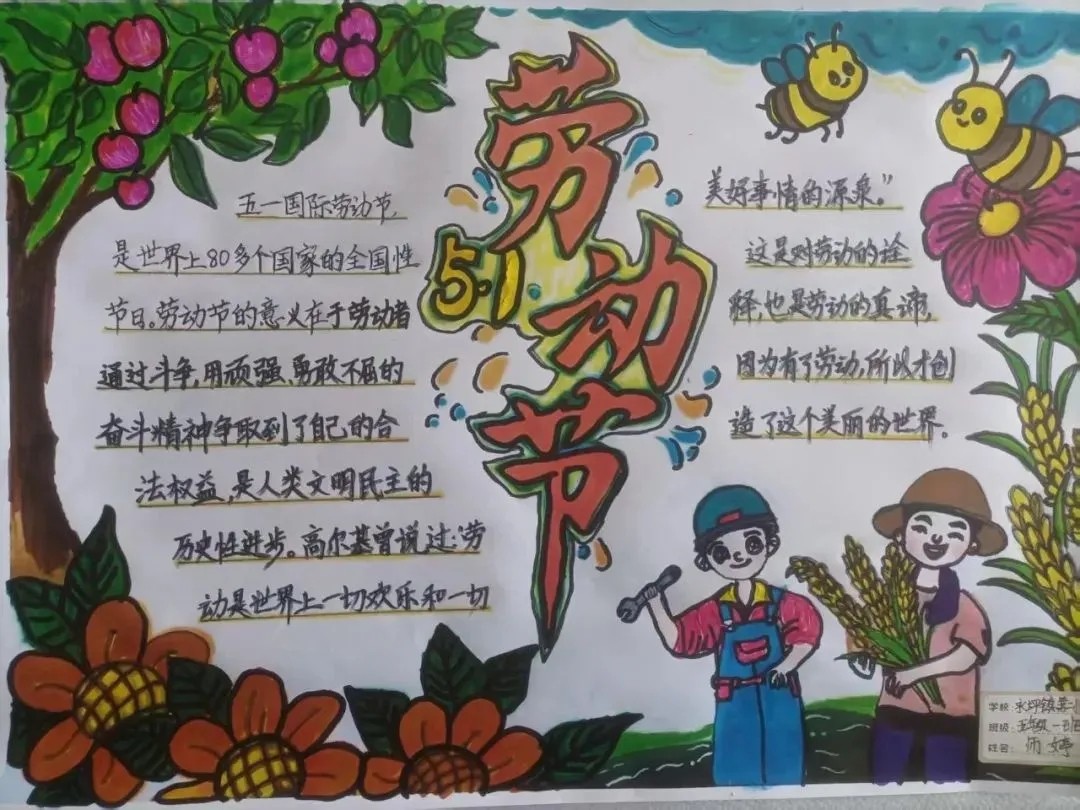 劳动节
5·1
五一国际劳动节,
是世界上80多个国家的全国性
节日。劳动节的意义在于劳动者
通过斗争,用顽强、勇敢不屈的
奋斗精神争取到了自己的合
法权益,是人类文明民主的
历史性进步。高尔基曾说过:“劳
动是世界上一切欢乐和一切
美好事情的源泉。”
这是对劳动的诠
释,也是劳动的真谛,
因为有了劳动,所以才创
造了这个美丽的世界.
学校: 永坪镇第
班级: 五年级一
姓名: 师婷